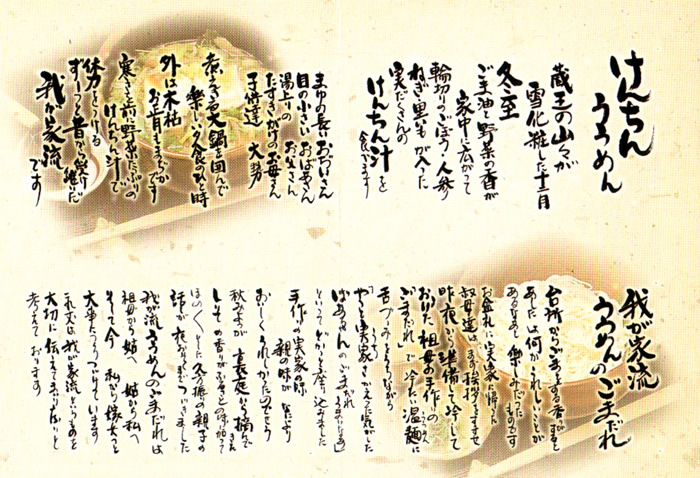 けんちん
うーめん
蔵王の山々が
雪化粧した十二月
冬至
ごま油と野菜の香が
家中に広がって
輪切りのごぼう・人参
ねぎ・里いもが入った
実だくさんの
けんちん汁を
食べます
まゆの長いおじいさん
目の小さいおばあさん
湯上りのお父さん
たすきがけのお母さん
子供達 大勢
煮えたぎる大鍋を囲んで
楽しい夕食のひと時
外は木枯
お正月もまぢかです
寒さを前に野菜たっぷりの
けんちん汁で
体力をつける
ずーっと昔から受け継いだ
我が家流です
我が家流
うーめんのごまだれ
台所からごまをする香がすると
あしたは何かうれしいことが
あるなあーと楽しみだった
ものです
お盆礼に実家に帰った
叔母達は まず挨拶をすませ
昨夜から準備して冷して
おいた祖母の手作りの
ごまだれで冷たい温麺に
舌づつみをうちながら
やっと実家さかえた気がした
ばあちゃんのごまだれ
うまいなあ」
といってどっかと座り込みました
手作りの実家の味
親の味が 何より
おいしくうれしかったのでしょう
秋みょうが 裏庭から摘んだ
しその香りが会話との時加って
ほのぼのとした久々振の親子の
話が夜なかまでつづきました
我が流うーめんのごまだれは
祖母から姑へ 姑から私へ
そして今 私から嫁へっと
大事にうけつけています
これ又は我が家流というものを
大切に伝えてまいりたいと
考えております